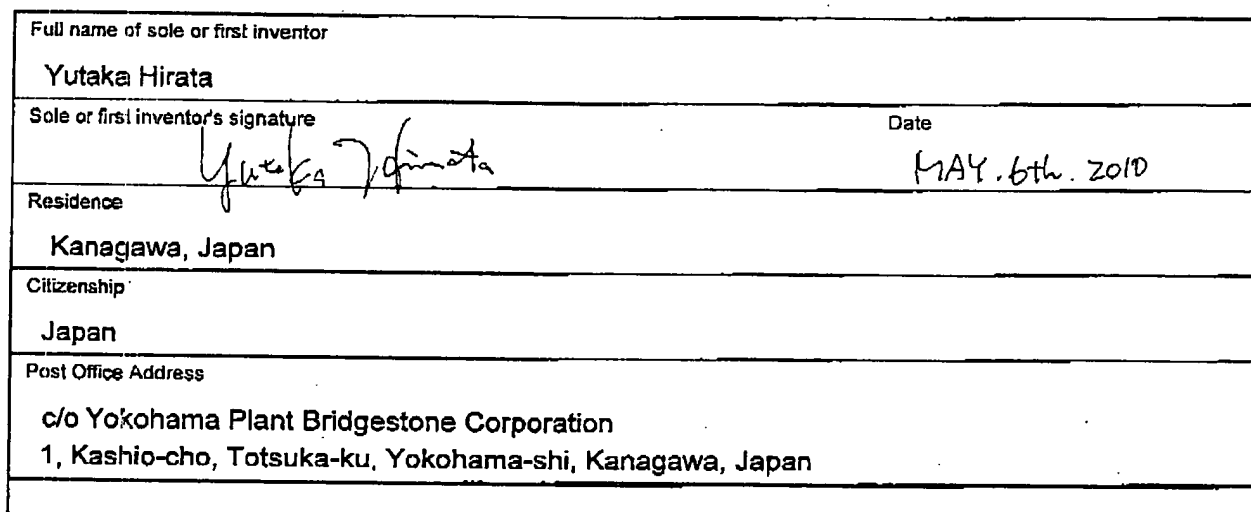 Full name of sole or first inventor
Yutaka Hirata
Sole or first inventor's signature
Date
Yutaka Hirata
MAY. 6th. 2010
Residence
Kanagawa, Japan
Citizenship
Japan
Post Office Address
c/o Yokohama Plant Bridgestone Corporation
1, Kashio-cho, Totsuka-ku, Yokohama-shi, Kanagawa, Japan